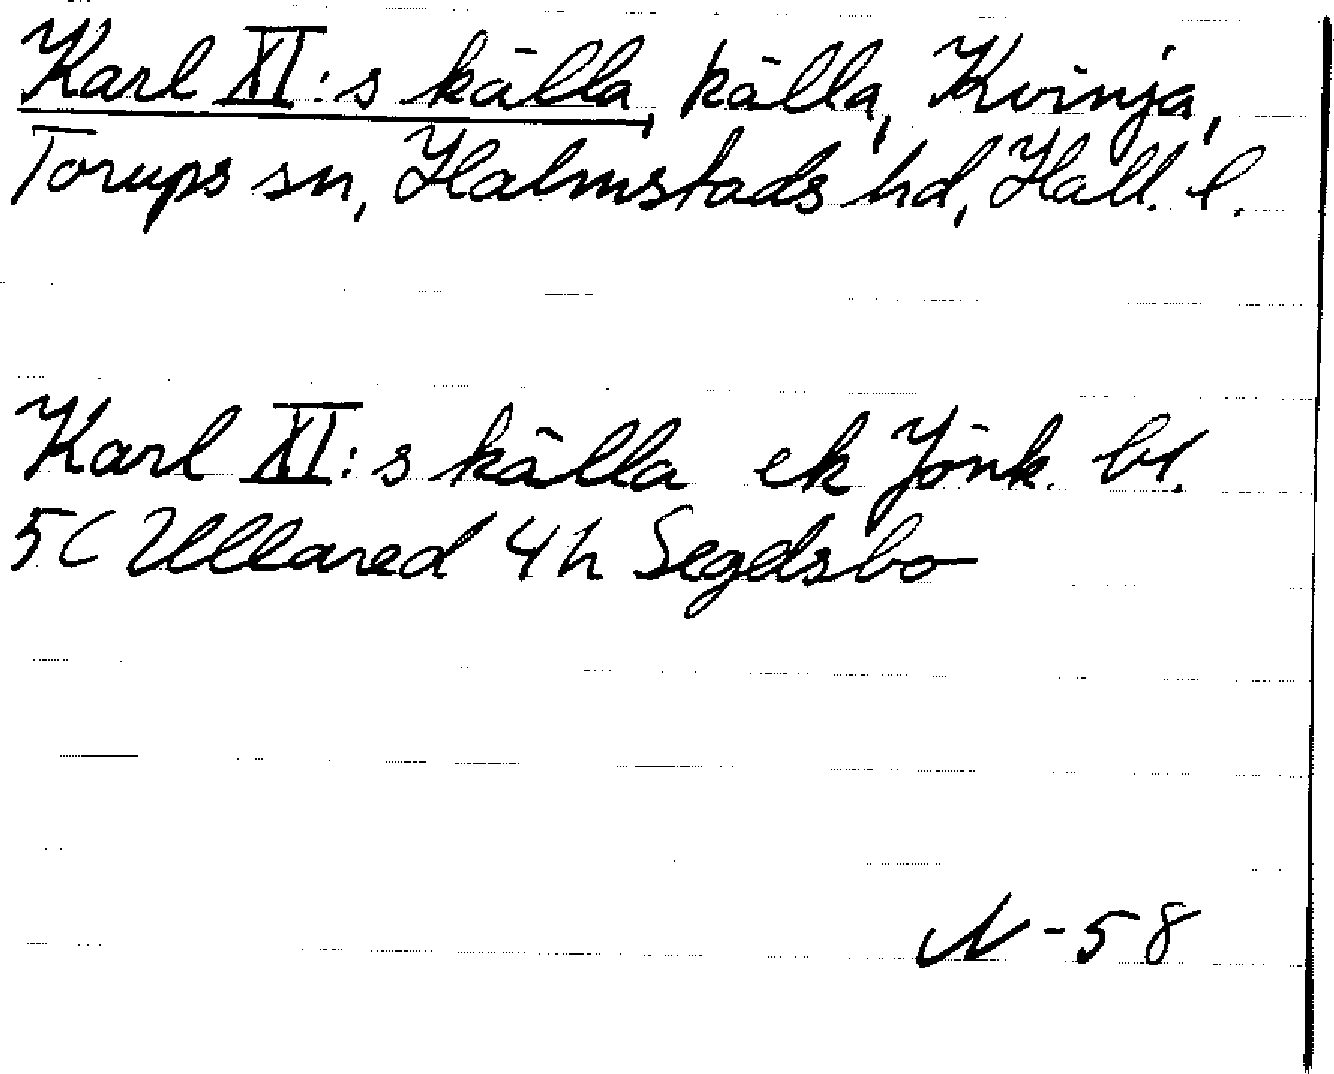 Karl XI:s källa, källa, Kvinja,
Torups sn, Halmstads hd, Hall. l.
Karl XI:s källa ek Jönk. bl.
5C Ullared 4h Segdsbo
N-58